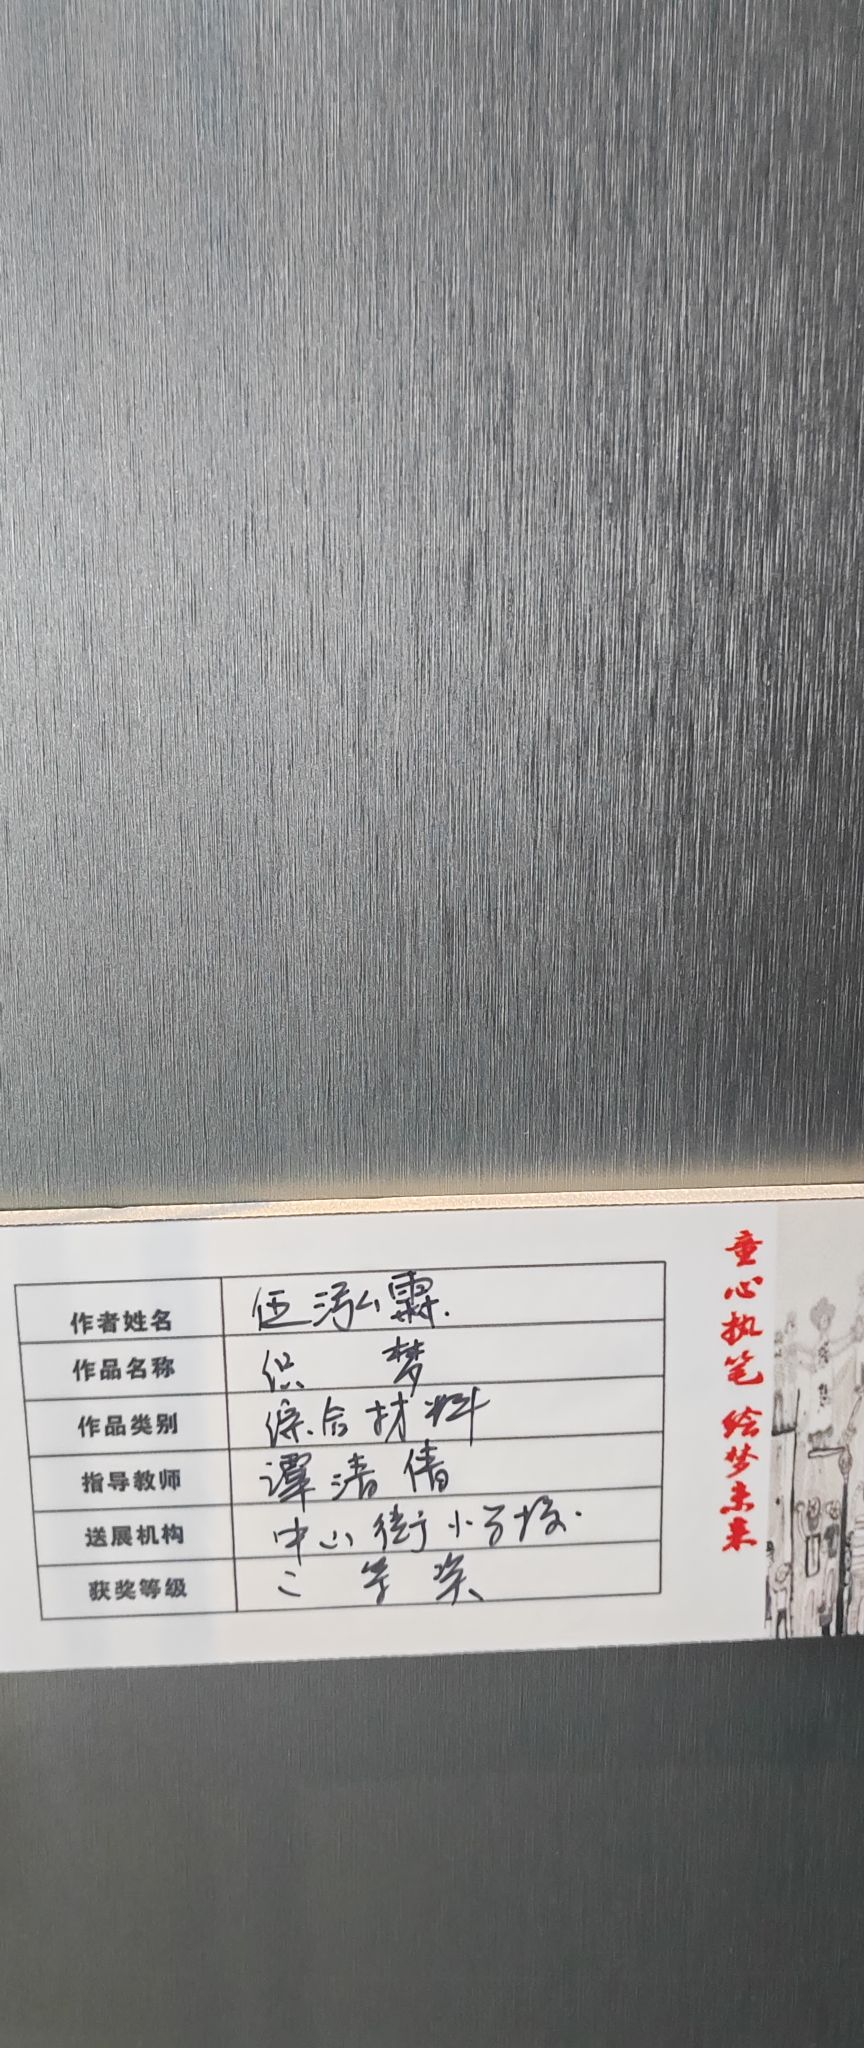 作者姓名 伍泓霖
作品名称 织梦
作品类别 综合材料
指导教师 谭清倩
送展机构 中山街小学校
获奖等级 二等奖
童心执笔 绘梦未来